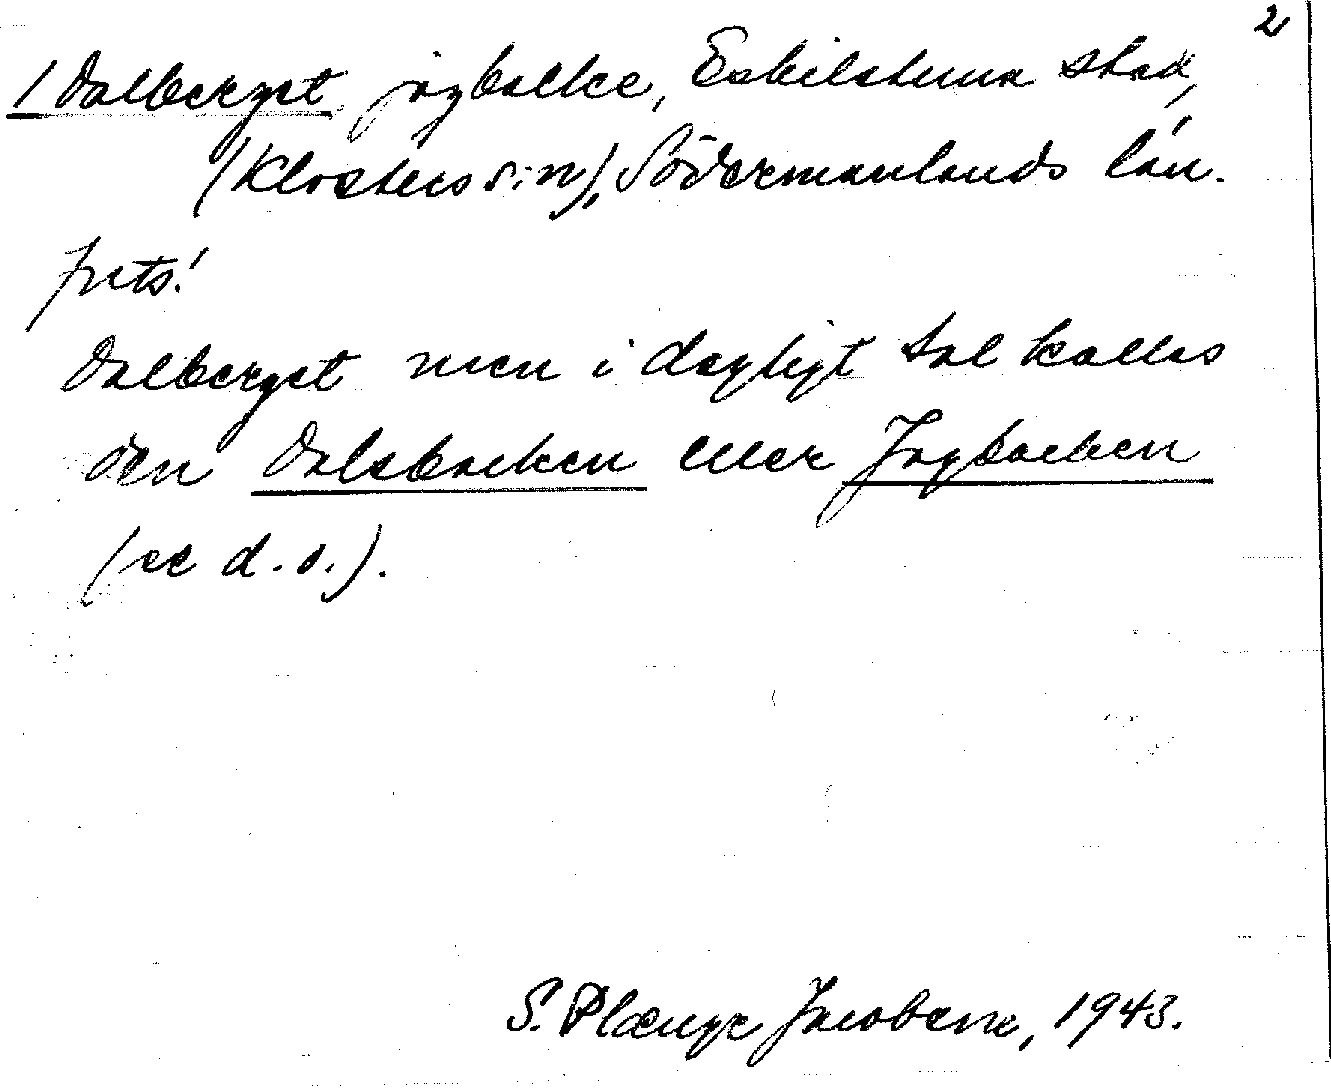 2
/ Dalberget jagbacke, Eskilstuna stad,
(Klosters s:n), Södermanlands län.
forts!
Dalberget men i dagligt tal kallas
den Dalsbacken eller Jagbacken
(se d.o.).
S. Plænge Jacobsen, 1943.